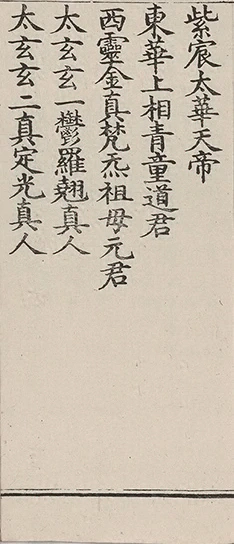 紫宸太華天帝
東華上相青童道君
西靈金真梵炁祖母元君
太玄玄一鬱羅翹真人
太玄玄二真定光真人